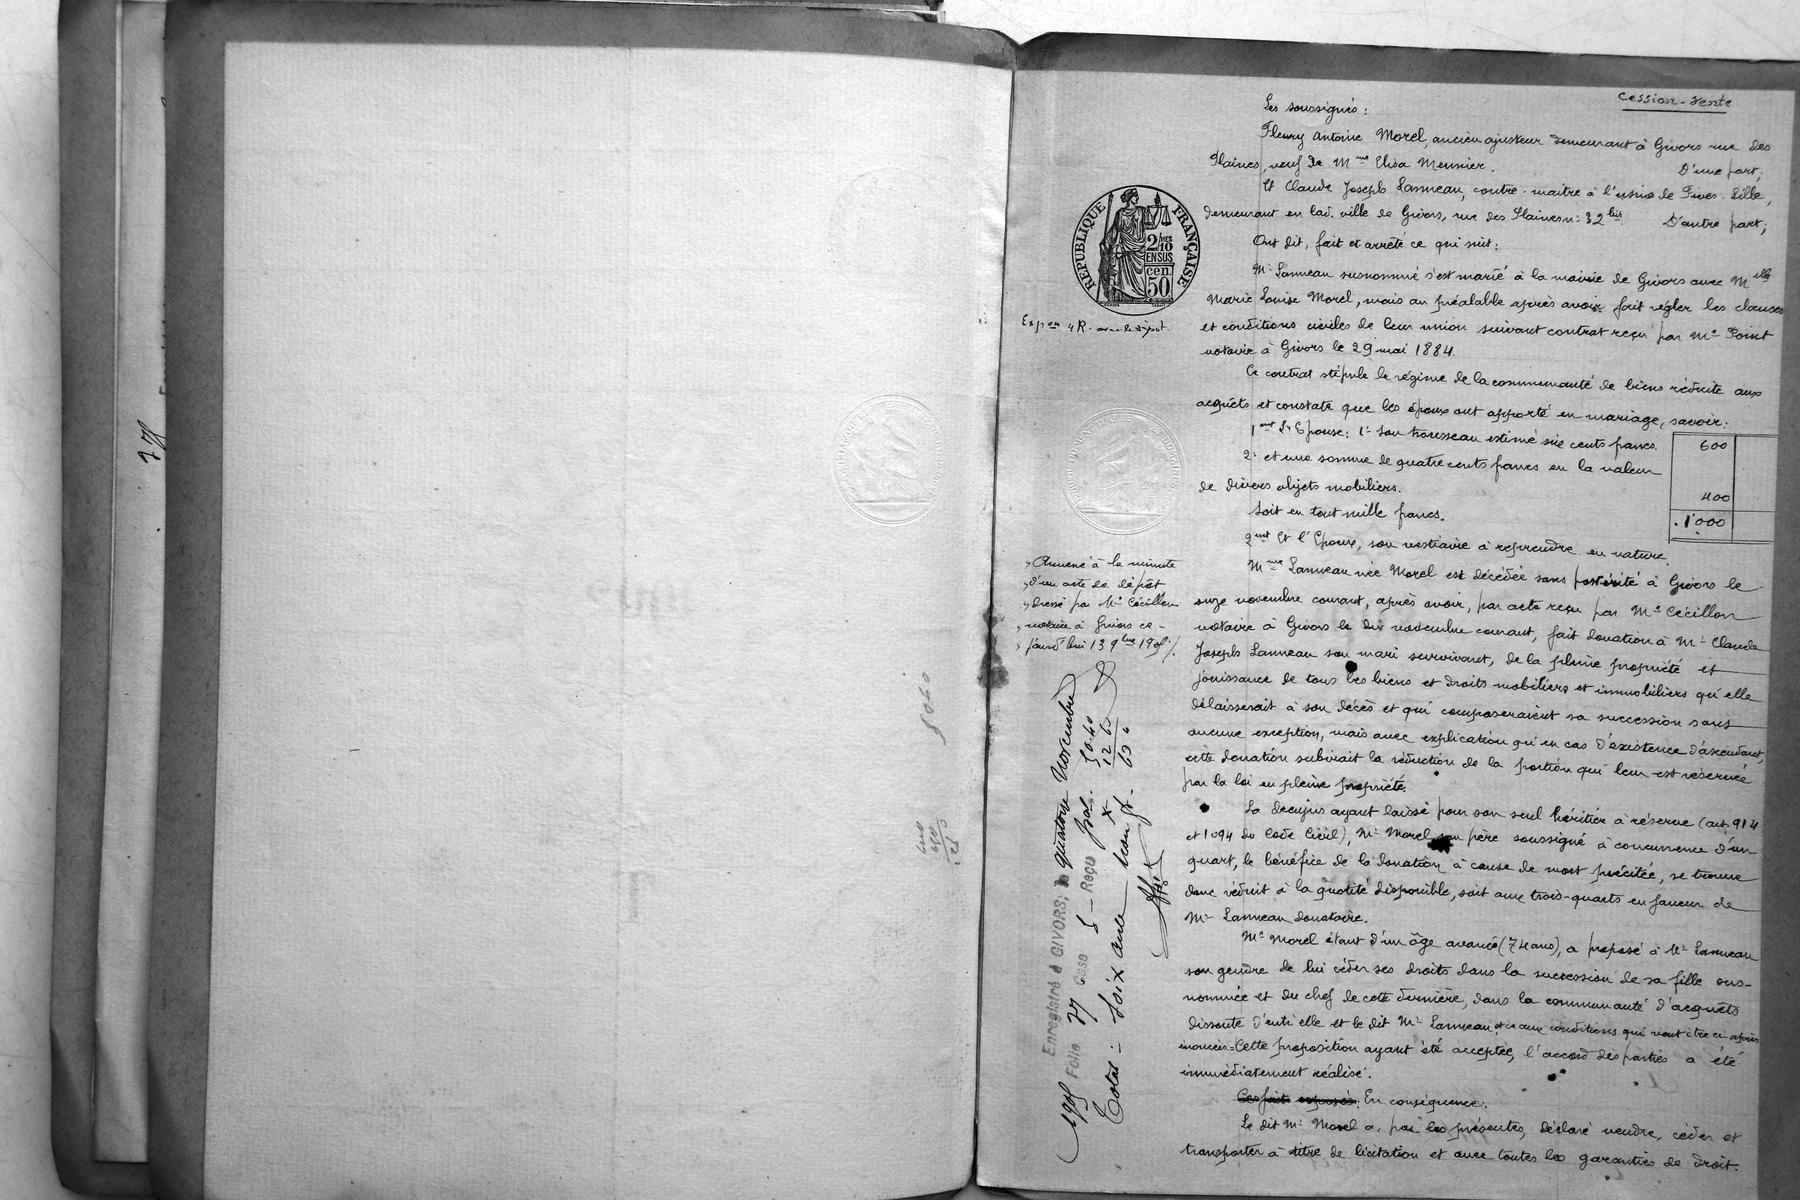 Cession-Vente
Les soussignés :
Fleury Antoine Morel, ancien ajusteur demeurant à Givors rue des
Plaines, veuf de Mme Elisa Meunier. D'une part;
Et Claude Joseph Lanneau, contre-maitre à l'usine de Fives-Lille,
demeurant en lad. ville de Givors, rue des Plaines n: 32 bis D'autre part;
Ont dit, fait et arrêté ce qui suit:
Mr Lanneau susnommé s'est marié à la mairie de Givors avec Melle
Marie Louise Morel, mais au préalable après avoir fait régler les clauses
et conditions civiles de leur union suivant contrat reçu par Me Point
notaire à Givors le 29 mai 1884.
Ce contrat stipule le régime de la communauté de biens réduite aux
acquêts et constate que les époux ont apporté en mariage, savoir:
1ent L'Epouse: 1° son trousseau estimé six cents francs. 600
2° et une somme de quatre cents francs en la valeur
de divers objets mobiliers. 400
Soit en tout mille francs. 1.000
2ent Et l'Epoux, son vestiaire à reprendre en nature.
Mme Lanneau née Morel est décédée sans postérité à Givors le
onze novembre courant, après avoir, par acte reçu par Me Cécillon
notaire à Givors le dix novembre courant, fait donation à Mr Claude
Joseph Lanneau son mari survivant, de la pleine propriété et
jouissance de tous les biens et droits mobiliers et immobiliers qu'elle
délaisserait à son décès et qui composeraient sa succession sans
aucune exception, mais avec explication qu'en cas d'existence d'ascendant,
cette donation subirait la réduction de la portion qui leur est réservée
par la loi en pleine propriété.
La decujus ayant laissé pour son seul héritier à réserve (art. 914
et 1094 du Code Civil), Mr Morel son père soussigné à concurrence d'un
quart, le bénéfice de la donation à cause de mort précitée, se trouve
donc réduit à la quotité disponible, soit aux trois-quarts en faveur de
Mr Lanneau donataire.
Mr Morel étant d'un âge avancé (74 ans), a proposé à Mr Lanneau
son gendre de lui céder ses droits dans la succession de sa fille sus-
nommée et du chef de cette dernière, dans la communauté d'acquêts
dissoute d'entr'elle et le dit Mr Lanneau et ce aux conditions qui vont être ci-après
énoncées. Cette proposition ayant été acceptée, l'accord des parties a été
immédiatement réalisé.
Ces faits exposés: En conséquence:
Le dit Mr Morel a, par les présentes, déclaré vendre, céder et
transporter à titre de licitation et avec toutes les garanties de droit.
RÉPUBLIQUE FRANÇAISE
2/10 EN SUS
50 cen.
Annexé à la minute
d'un acte de dépôt
dressé par Me Cécillon
notaire à Givors ce-
jourd'hui 13 9bre 190
Enregistré à GIVORS, le quatorze Novembre
Folio 77 Case 5 Reçu
Total: soixante trois fr.
50.40
12.60
63 "